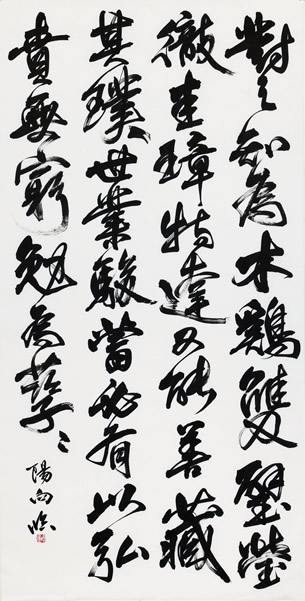 對之知為木鷄雙璧瑩
徹圭璋特達又能善藏
其璞世業駿當必有以弘
賁無窮勉為孳〻
陽向臨